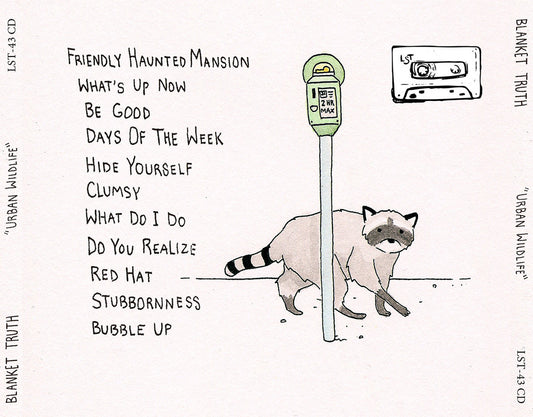 LST-43 CD
"URBAN WILDLIFE"
BLANKET TRUTH
FRIENDLY HAUNTED MANSION
WHAT'S UP NOW
BE GOOD
DAYS OF THE WEEK
HIDE YOURSELF
CLUMSY
WHAT DO I DO
DO YOU REALIZE
RED HAT
STUBBORNNESS
BUBBLE UP
2 HR
MAX
LST
BLANKET TRUTH
"URBAN WILDLIFE"
LST-43 CD